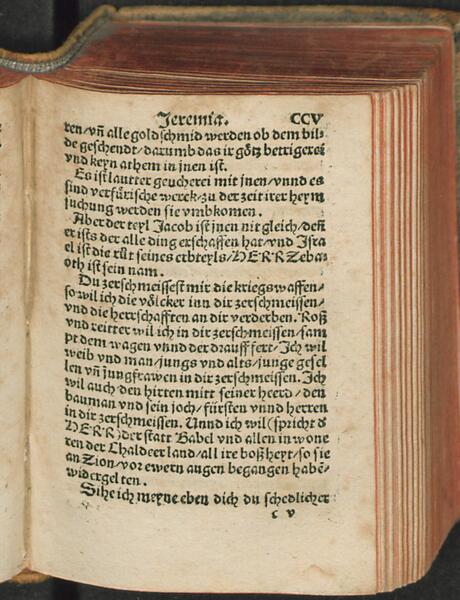 Jeremia. CCV
ren/ vñ alle goldschmid werden ob dem bil⸗
de geschendt/ darumb das ir götz betrigerei
vnd keyn athem in jnen ist.
Es ist lautter geucherei mit jnen/ vnnd es
sind verfürische werck/ zu der zeit irer heym
suchung werden sie vmbkomen.
Aber der teyl Jacob ist jnen nit gleich/ deñ
er ists der alle ding erschaffen hat/ vnd Isra
el ist die růt seines erbteyls/ HERR Zeba⸗
oth ist sein nam.
Du zerschmeissest mir die kriegs waffen/
so wil ich die völcker inn dir zerschmeissen/
vnd die herrschafften an dir verderben. Roß
vnd reitter wil ich in dir zerschmeissen/ sam
pt dem wagen vnnd der drauff fert/ Ich wil
weib vnd man/ jungs vnd alts/ junge gesel
len vñ jungfrawen in dir zerschmeissen. Ich
wil auch den hirten mitt seiner heerd/ den
bauman vnd sein joch/ fürsten vnnd herren
in dir zerschmeissen. Unnd ich wil (spricht d
HERR) der statt Babel vnd allen inwone
ren der Chaldeer land/ all ire boßheyt/ so sie
an Zion/ vor ewern augen begangen habẽ/
widergelten.
Sihe ich meyne eben dich du schedlicher
c v